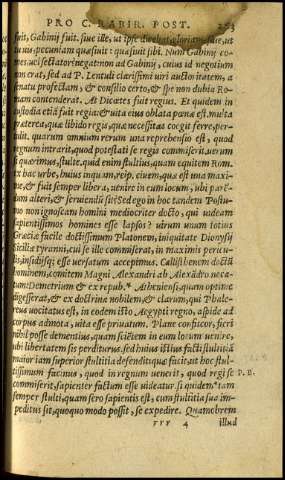 PRO C. RABIR. POST. 253
fuit, Gabinij fuit. siue ille, ut ipse
tuus, pecuniam quæsiuit: quæsiuit sibi. Num Gabinij co-
mes uel sectator? negat. non ad Gabinij, cuius id negotium
non erat, sed ad P. Lentuli clarissimi uiri auctoritatem, à
senatu profectam, & consilio certo, & spe non dubia Ro-
mam contenderat. At Dicætes fuit regius. Et quidem in
custodia etiā fuit regia: & uita eius oblata pæne est. multa
præterea, quæ libido regis, quæ necessitas coegit ferre, per-
tulit, quarum omnium rerum una reprehensio est, quod
regnum intrarit, quod potestati se regis commiserit. uerum
si quærimus, stulte. quid enim stultius, quam equitem Rom.
ex hac urbe, huius inquam, reip, ciuem, quæ est una maxi-
me, & fuit semper libera, uenire in eum locum, ubi parē-
dum alteri, & seruiendū sit? Sed ego in hoc tandem Postu-
mo non ignoscam homini mediocriter docto, qui uideam
sapientissimos homines esse lapsos? uirum unum totius
Græciæ facile doctissimum Platonem, iniquitate Dionysij
Siciliæ tyranni, cui se ille commiserat, in maximis pericu-
lis, insidijsq; esse uersatum accepimus. Callisthenem doctū
hominem, comitem Magni Alexandri ab Alexādro neca-
tum: Demetrium & ex repub. Atheniensi, quam optime
digesserat, & ex doctrina nobilem, & clarum, qui Phale-
reus uocitatus est, in eodem isto Aegypti regno, aspide ad
corpus admota, uita esse priuatum. Plane confiteor, fieri
nihil posse dementius, quam scientem in eum locum uenire,
ubi libertatem sis perditurus. sed huius istius facti stultitiā
maior iam superior stultitia defendit: quæ fecit, ut hoc stul-
tissimum facinus, quod in regnum uenerit, quod regi se P. B.
commiserit, sapienter factum esse uideatur. si quidem tam
semper stulti, quam sero sapientis est, cum stultitia sua im-
peditus sit, quoquo modo possit, se expedire. Quamobrem
YYY 4 illud